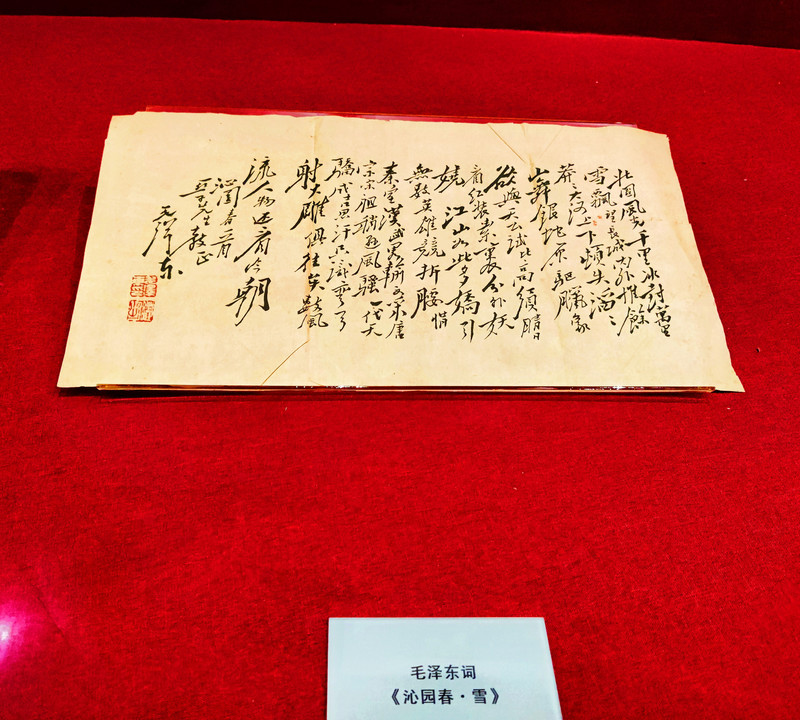 北国風光千里冰封萬里
雪飄望長城内外惟餘
莽々大河上下頓失滔々
山舞銀蛇原馳臘象
欲與天公試比高須晴日
看红装素裹分外妖
嬈江山如此多嬌引
無数英雄競折腰惜
秦皇漢武略输文采唐
宗宋祖稍逊風騷一代天
驕成吉思汗只識彎弓
射大雕俱往矣数風
流人物还看今朝
沁園春一首
亞子先生教正
毛泽东
毛泽东词
《沁园春·雪》